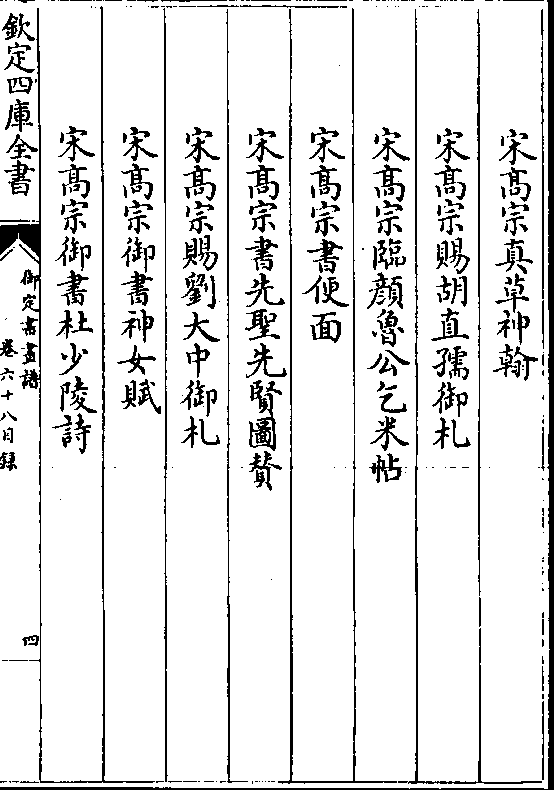 宋髙宗真草神翰
宋髙宗賜胡直孺御札
宋髙宗臨顔魯公乞米帖
宋髙宗書便面
宋髙宗書先聖先賢圖贊
宋髙宗賜劉大中御札
宋髙宗御書神女賦
宋髙宗御書杜少陵詩
欽定四庫全書
御定書畫譜
卷六十八目録
四